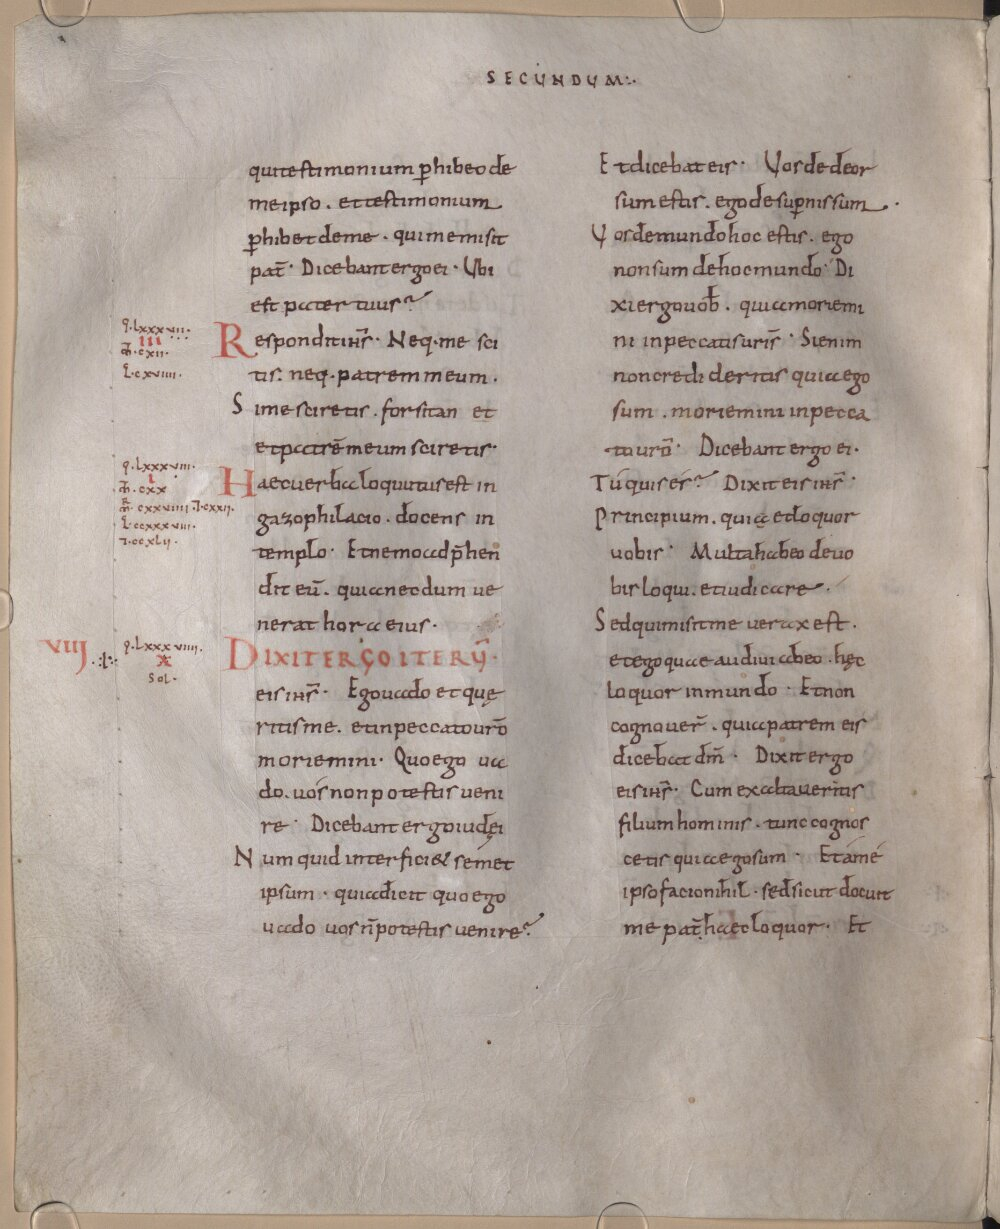 SECUNDUM:·
qui testimonium ꝑhibeo de
me ipso . et testimonium
ꝑhibet de me . qui me misit
pat̅· Dicebant ergo ei · Ubi
est pater tuus?
q̅. lxxxvii.
III
m̅. cxii.
l. cxviiii.
Respondit ih̅s · Neq. me sci
tis. neq. patrem meum .
Si me sciretis . forsitan et
et patrē meum sciretis·
q̅. lxxxviii.
I
m̅. cxx
m̅. cxxviiii. I. cxxii.
l. ccxxxviii.
I. ccxlii.
Haec uerba locutus est in
gazophilacio . docens in
templo · Et nemo adp̅hen
dit eū . quia necdum ue
nerat hora eius ·
VIIJ
q̅. lxxxviiii.
X
Sol.
DIXIT ERGO ITERŪ·
eis ih̅s · Ego uado et quę
ritis me . et in peccato uro̅
moriemini · Quo ego ua
do . uos non potestis ueni
re · Dicebant ergo iudęi
Num quid interficiet semet
ipsum · quia dicit quo ego
uado uos n̅ potestis uenire?
Et dicebat eis · Uos de deor
sum estis . ego de suꝑnis sum .
Uos de mundo hoc estis . ego
non sum de hoc mundo · Di
xi ergo uob̅ . quia moriemi
ni in peccatis uris̅ · Si enim
non credideritis quia ego
sum . moriemini in pecca
to uro̅ · Dicebant ergo ei ·
Tú quis és? Dixit eis ih̅s ·
Principium . quia et loquor
uobis · Multa habeo de uo
bis loqui . et iudicare .
Sed qui misit me uerax est .
et ego quae audiui ab eo . hęc
loquor in mundo · Et non
cognouer̅ . quia patrem eis
dicebat dm̅ · Dixit ergo
eis ih̅s · Cum exaltaueritis
filium hominis . tunc cognos
cetis quia ego sum · Et á mé
ipso facio nihil · sed sicut docuit
me pat̅ haec loquor · Et